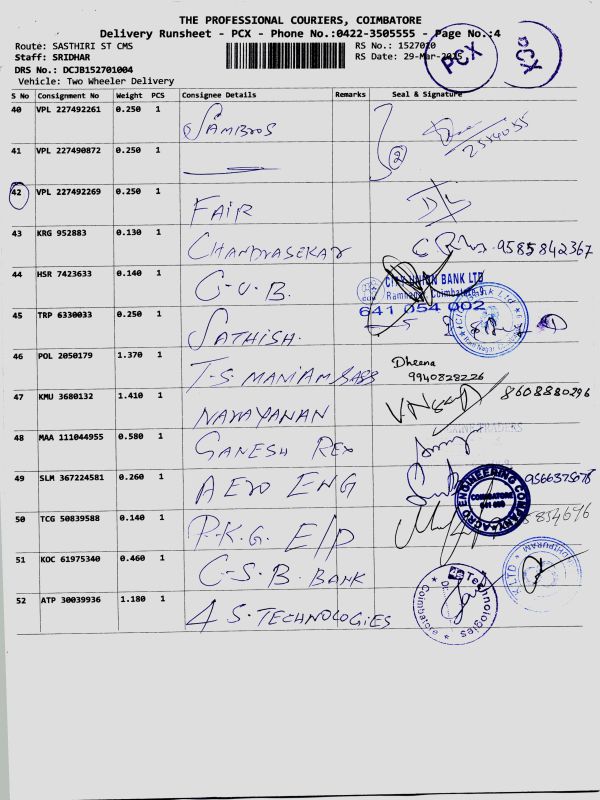 THE PROFESSIONAL COURIERS, COIMBATORE
Delivery Runsheet - PCX - Phone No.:0422-3505555 - Page No.:4
Route: SASTHIRI ST CMS
RS No.: 1527010
Staff: SRIDHAR
RS Date: 29-Mar-2015
DRS No.: DCJB152701004
Vehicle: Two Wheeler Delivery
PCX
PCX
S No Consignment No Weight PCS Consignee Details Remarks Seal & Signature
40 VPL 227492261 0.250 1 SAMBROS 2554055
41 VPL 227490872 0.250 1
42 VPL 227492269 0.250 1 FAIR
43 KRG 952883 0.130 1 CHANDRASEKAR 9585842367
44 HSR 7423633 0.140 1 C-U-B.
CITY UNION BANK LTD
Ramnagar, Coimbatore-9.
641 054 002
45 TRP 6330033 0.250 1 SATHISH.
46 POL 2050179 1.370 1 T-S. MANIAM SABS Dheena
9940828226
47 KMU 3680132 1.410 1 NARAYANAN 8608880296
48 MAA 111044955 0.580 1 GANESH REX
49 SLM 367224581 0.260 1 AERO ENG 9566375678
AGRO ENGINEERING COMPANY
COIMBATORE
50 TCG 50839588 0.140 1 P.K.G. E/P
51 KOC 61975340 0.460 1 C-S.B. BANK
52 ATP 30039936 1.180 1 4 S. TECHNOLOGIES
4S Technologies
Coimbatore